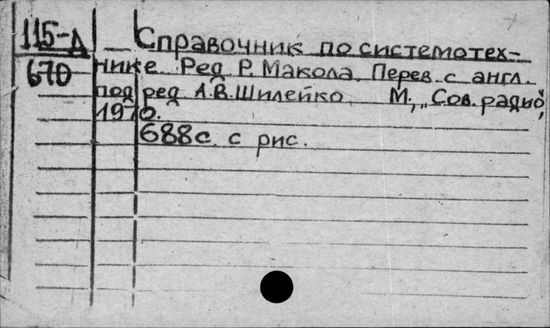 115-Д Справочник по системотех-
670 нике. Ред Р. Макола. Перев. с англ.
под ред А.В. Шилейко. М., "Сов. радио",
1970.
688с. с рис.